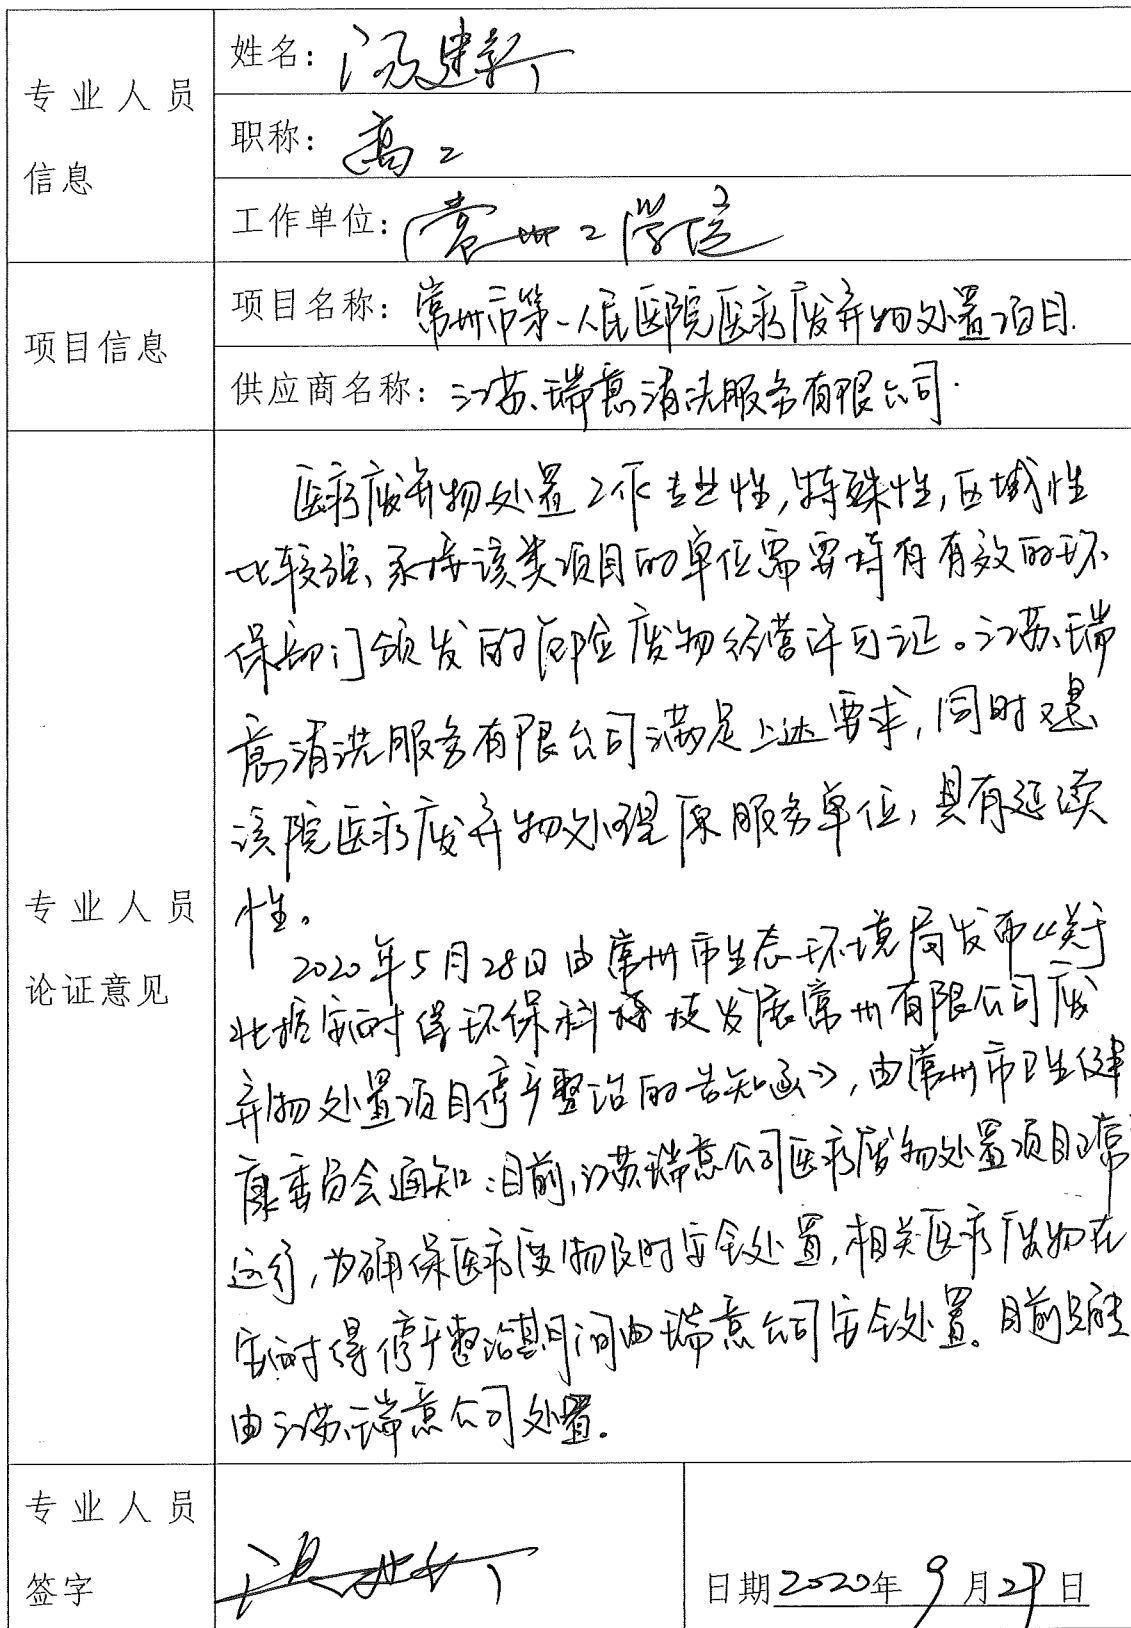 专业人员
信息
姓名：汤建新
职称：高工
工作单位：常州工学院
项目信息
项目名称：常州市第一人民医院医疗废弃物处置项目.
供应商名称：江苏瑞意清洗服务有限公司.
专业人员
论证意见
医疗废弃物处置工作专业性,特殊性,区域性
比较强、承接该类项目的单位需要持有有效的环
保部门颁发的危险废物经营许可证。江苏瑞
意清洗服务有限公司满足上述要求,同时又是
该院医疗废弃物处理原服务单位,具有延续
性。
2020年5月28日由常州市生态环境局发布《关于
北控安耐得环保科技发展常州有限公司废
弃物处置项目停产整治的告知函》,由常州市卫生健
康委员会通知:目前,江苏瑞意公司医疗废物处置项目正常
运行,为确保医疗废物及时安全处置,相关医疗废物在
安耐得停产整治期间由瑞意公司安全处置。目前只能
由江苏瑞意公司处置。
专业人员
签字
日期2020年9月29日